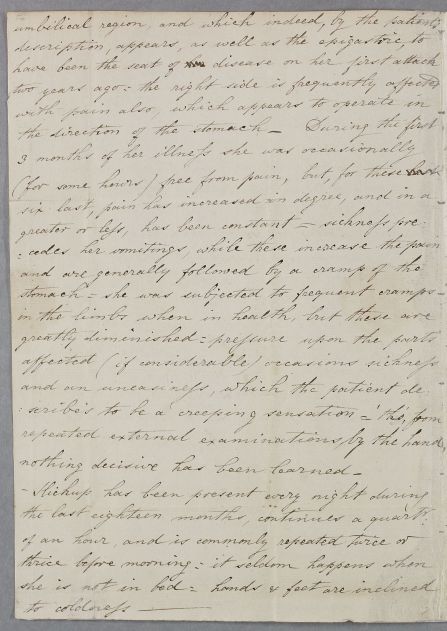 umbilical region, and which indeed, by the patient's
description, appears, as well as the epigastric, to
have been the seat of disease on her first attack
two years ago: the right side is frequently affected
with pain also, which appears to operate in
the direction of the stomach – During the first
3 months of her illness she was occasionally
(for some hours) free from pain, but, for these
six last, pain has increased in degree, and in a
greater or less, has been constant = sickness pre:
:cedes her vomitings, while these increase the pain
and are generally followed by a cramp of the
stomach = she was subjected to frequent cramps
in the limbs when in health, but these are
greatly diminished = pressure upon the parts
affected (if considerable) occasions sickness
and an uneasiness, which the patient de
:scribes to be a creeping sensation = tho', from
repeated external examinations, by the hand,
nothing decisive has been learned –
- Hickup has been present every night during
the last eighteen months, continues a quartr.
of an hour, and is commonly repeated twice or
thrice before morning: it seldom happens when
she is not in bed = hands & feet are inclined
to coldness —